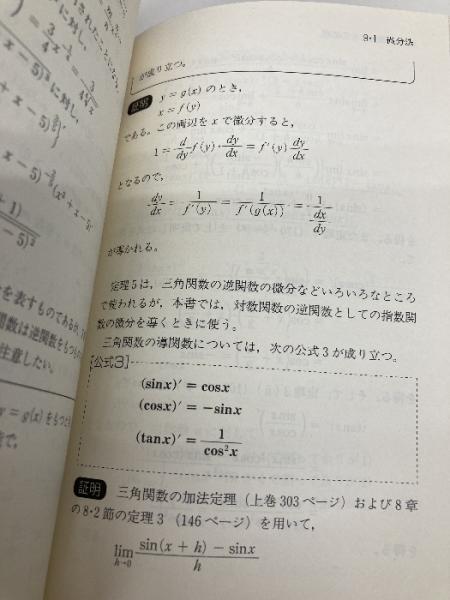 9・1 微分法
が成り立つ。
証明 y = g(x) のとき,
x = f(y)
である。この両辺を x で微分すると,
1 = d/dy f(y)・dy/dx = f′(y) dy/dx
となるので,
dy/dx = 1/f′(y) = 1/f′(g(x)) = 1/(dx/dy)
が導かれる。
定理5は，三角関数の逆関数の微分などいろいろなところ
で使われるが，本書では，対数関数の逆関数としての指数関
数の微分を導くときに使う。
三角関数の導関数については，次の公式3が成り立つ。
[公式3]
(sinx)′ = cosx
(cosx)′ = −sinx
(tanx)′ = 1/cos²x
証明 三角関数の加法定理（上巻303ページ）および8章
の8・2節の定理3（146ページ）を用いて，
lim h→0 sin(x + h) − sinx / h
に対し,
に対し,
を表すものである
関数は逆関数をもつ
注意したい。
y = g(x) をもつと